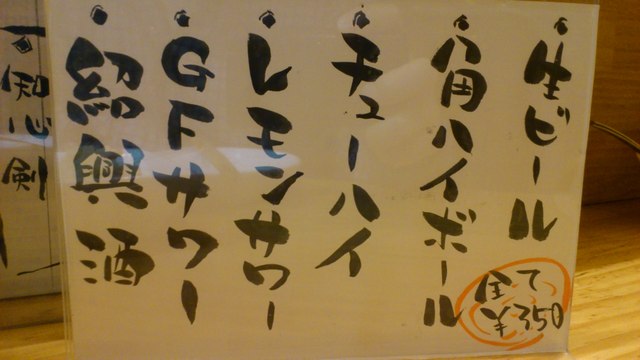 生ビール
角ハイボール
チューハイ
レモンサワー
GFサワー
紹興酒
全て
¥350
知心剣